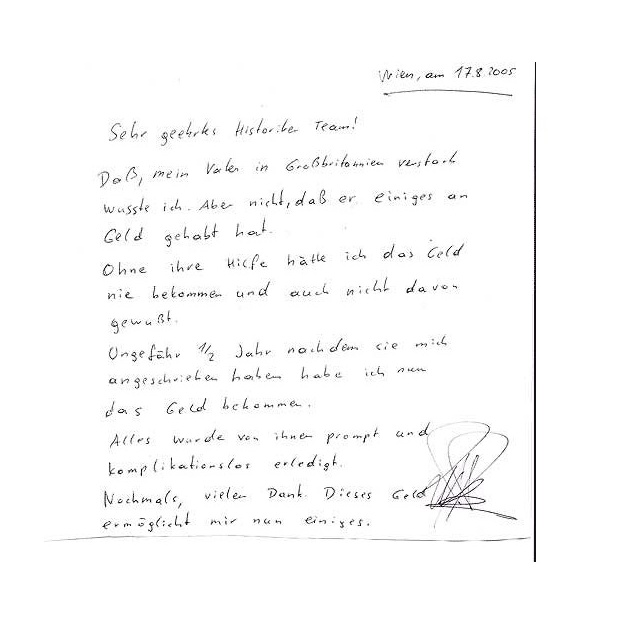 Wien, am 17.8.2005
Sehr geehrtes Historiker Team!
Daß, mein Vater in Großbritannien verstarb
wusste ich. Aber nicht, daß er einiges an
Geld gehabt hat.
Ohne ihre Hilfe hätte ich das Geld
nie bekommen und auch nicht davon
gewußt.
Ungefähr 1/2 Jahr nachdem sie mich
angeschrieben haben habe ich nun
das Geld bekommen.
Alles wurde von ihnen prompt und
komplikationslos erledigt.
Nochmals, vielen Dank. Dieses Geld
ermöglicht mir nun einiges.